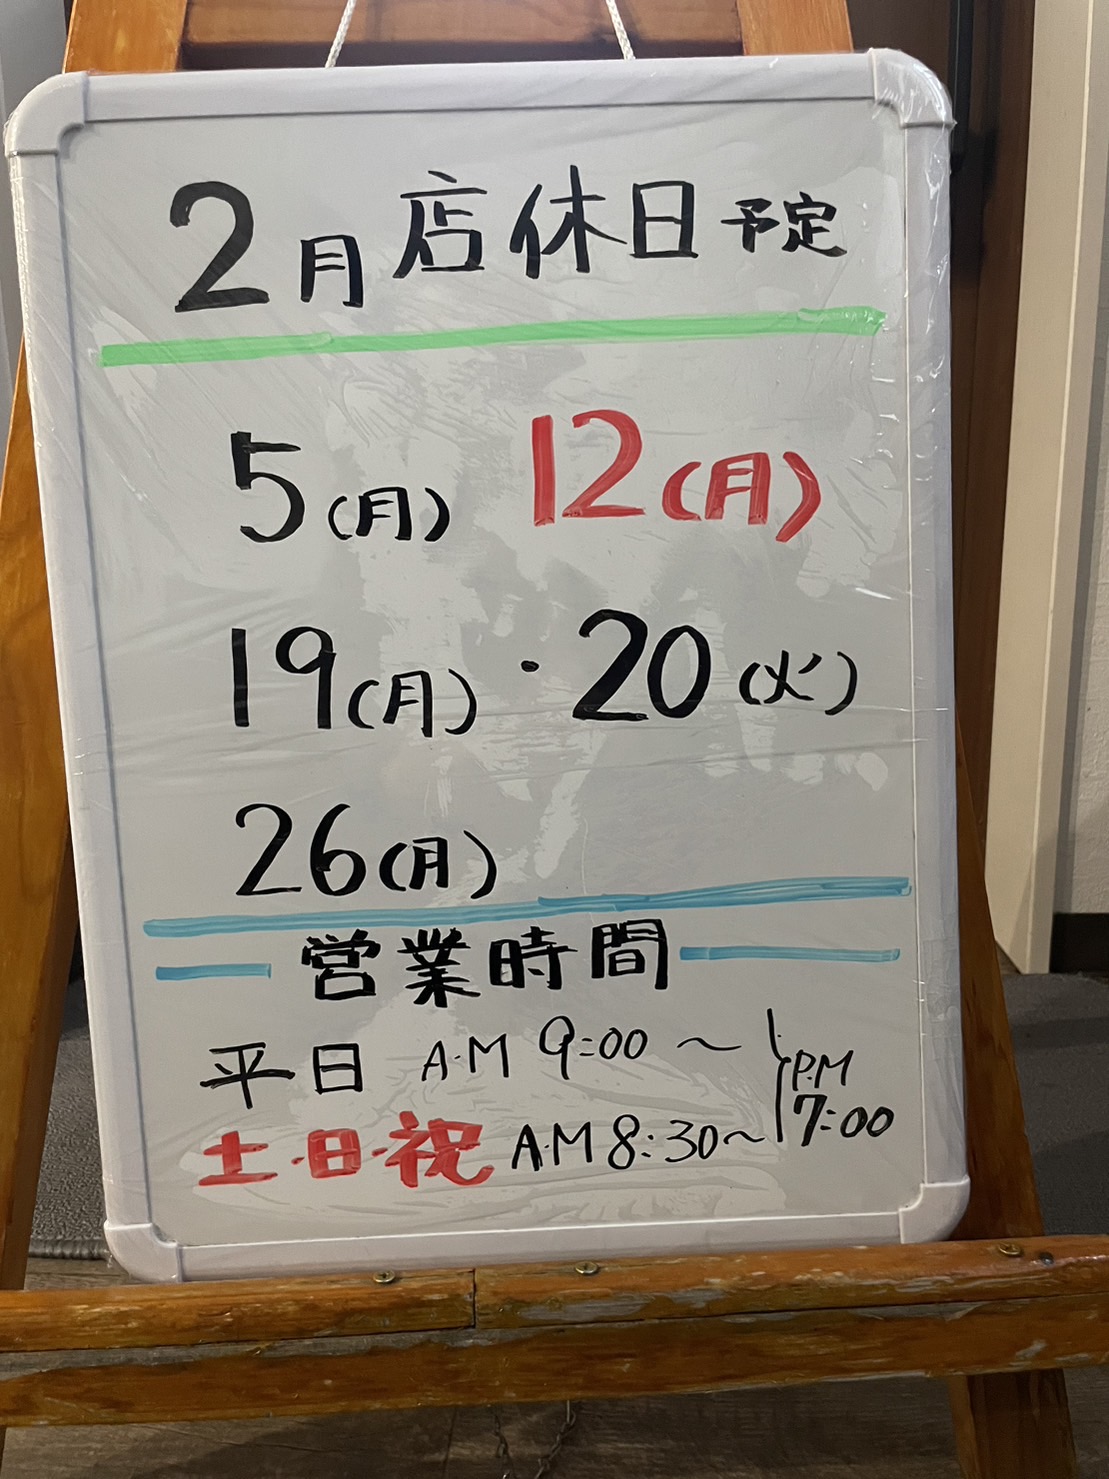 2月 店休日 予定
5(月) 12(月)
19(月)・20(火)
26(月)
営業時間
平日 A・M 9:00 〜
P.M
土・日・祝 A・M 8:30〜 7:00